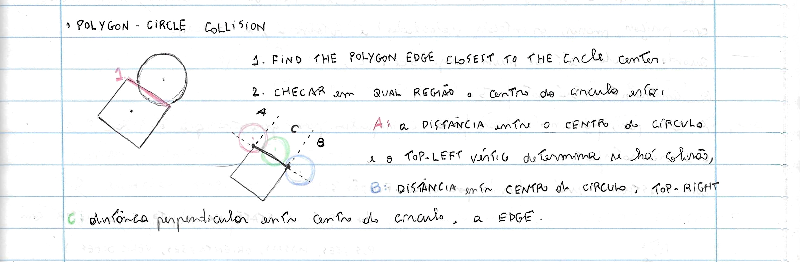 • POLYGON - CIRCLE COLLISION
1. FIND THE POLYGON EDGE CLOSEST TO THE circle center.
1
2. CHECAR em QUAL REGIÃO o centro do círculo está:
A
C
B
A: a DISTÂNCIA entre o CENTRO do CÍRCULO
e o TOP-LEFT vértice determina se há colisão,
B: DISTÂNCIA entre CENTRO do CÍRCULO, TOP-RIGHT
C: distância perpendicular entre centro do círculo, a EDGE.